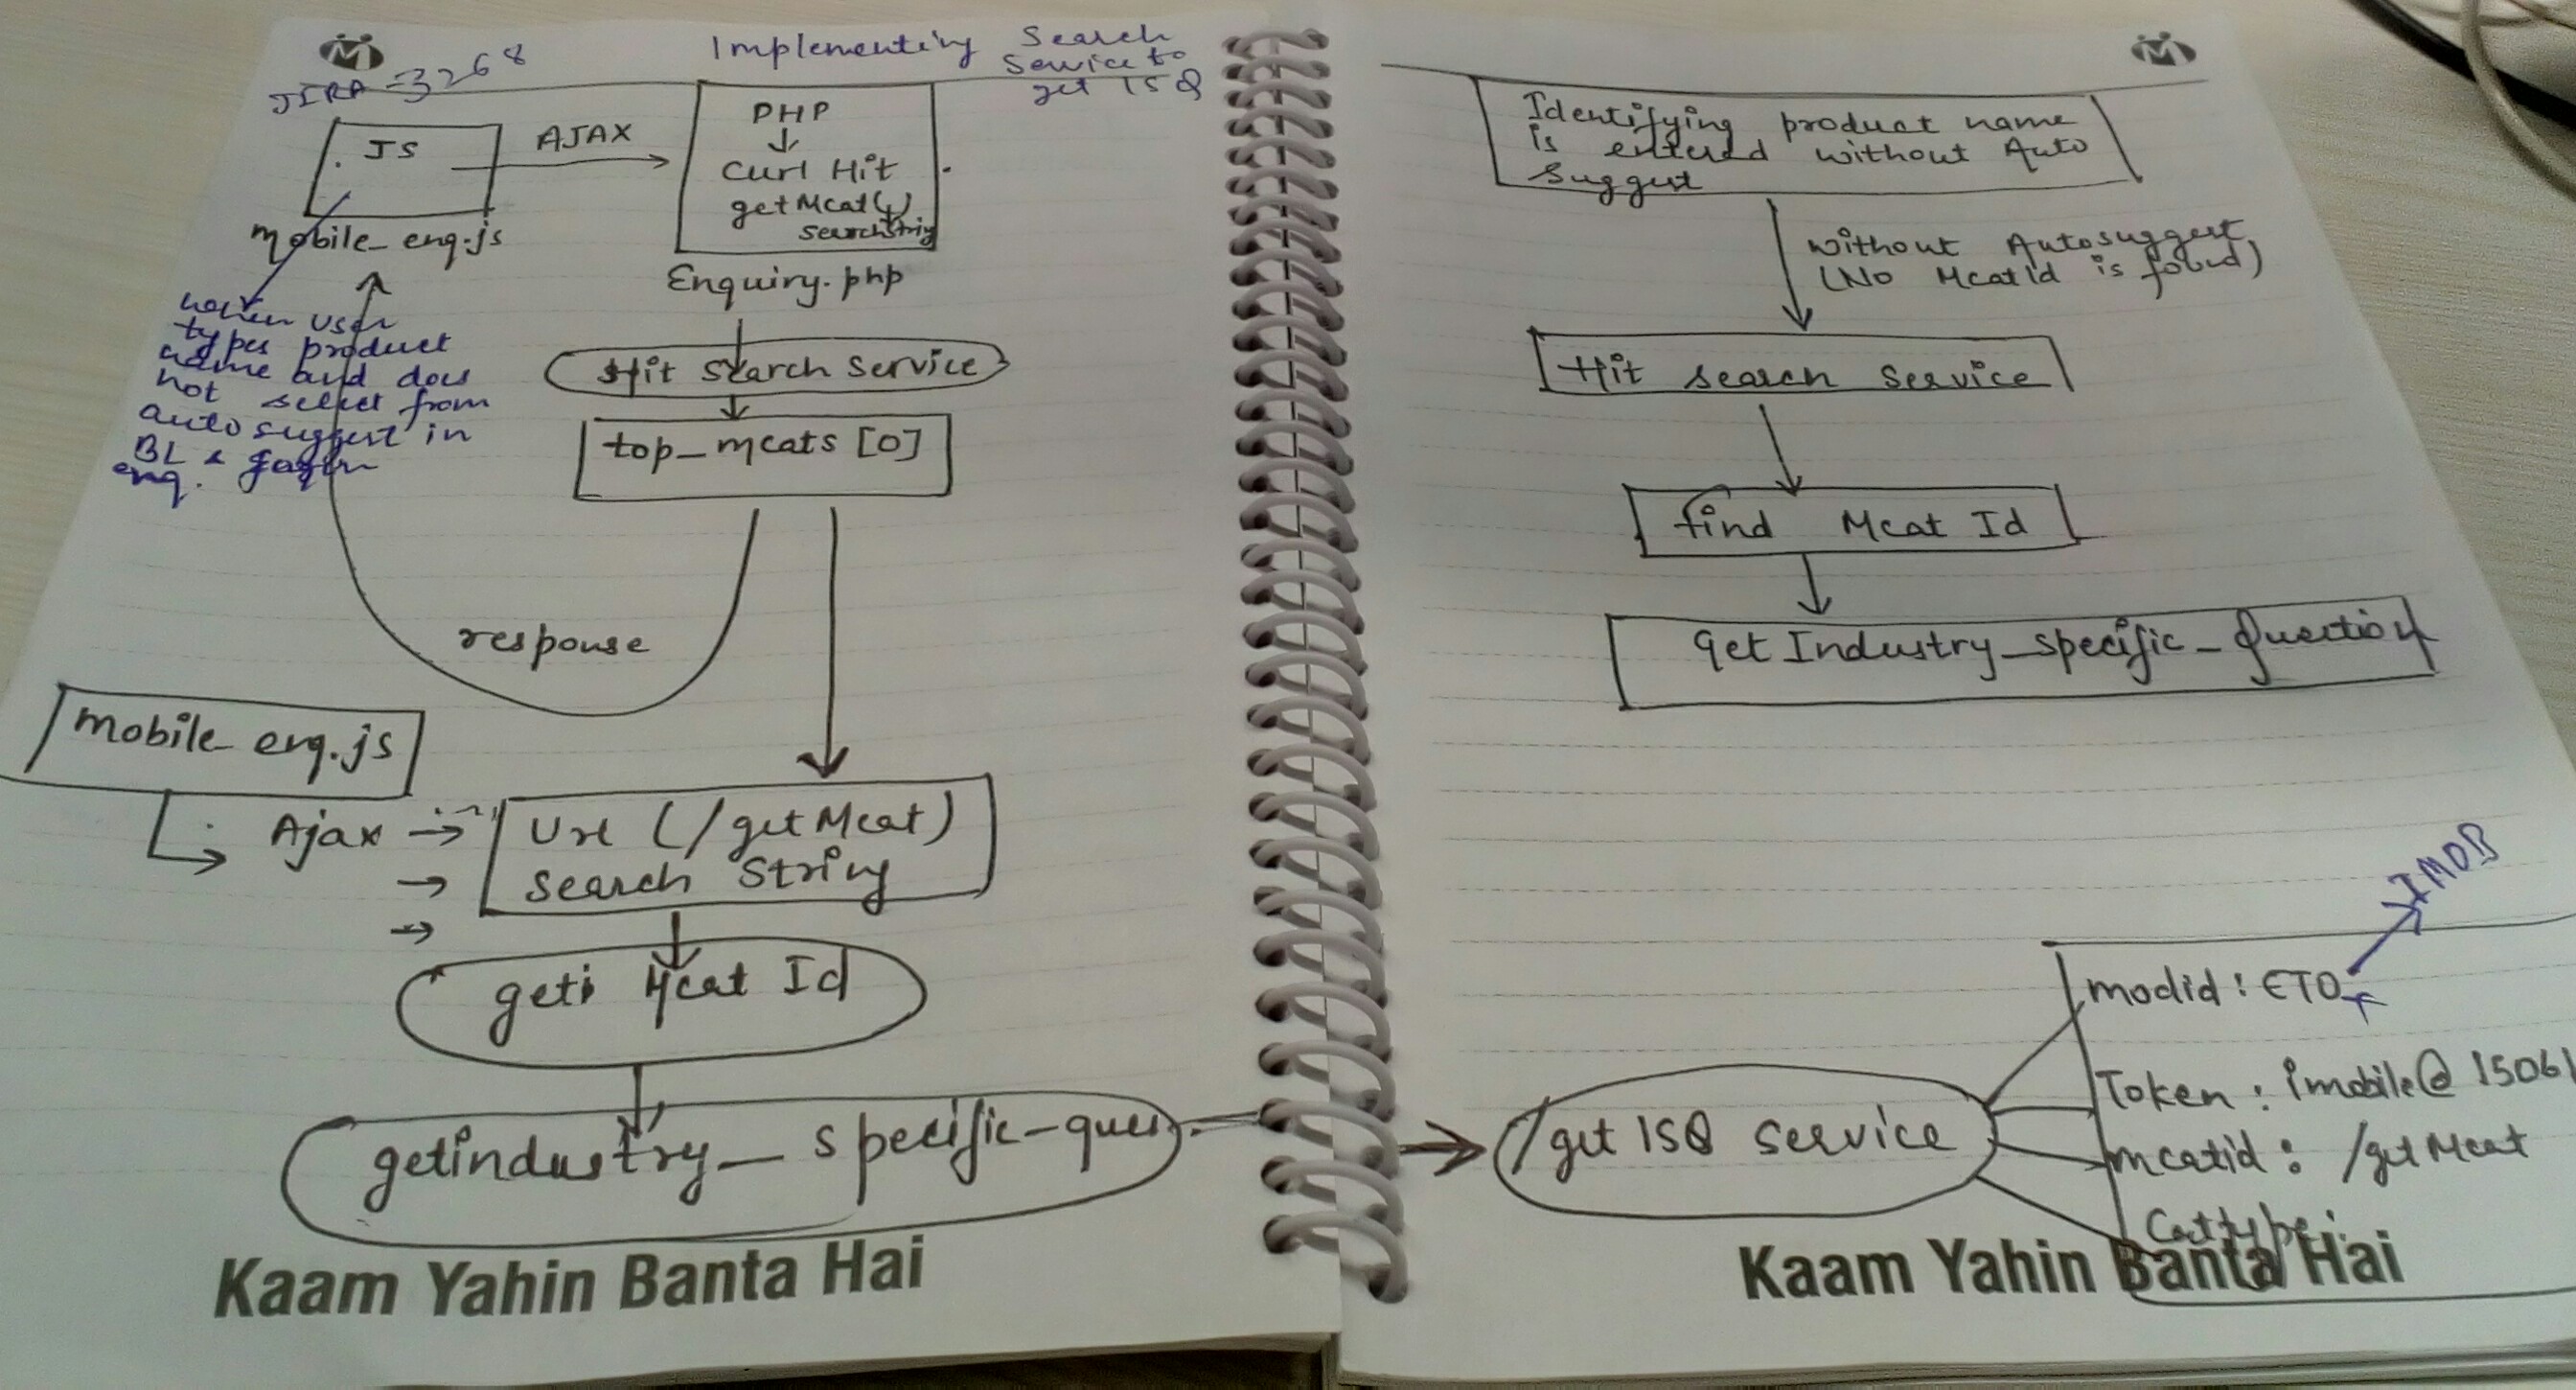 JIRA-3268
Implementing Search
Service to
get ISQ
JS
AJAX
PHP
Curl Hit
getMcat()
Searchstring
mobile_enq.js
Enquiry.php
when user
types product
name and does
not select from
auto suggest in
BL &
enq.
Hit Search Service
top_mcats [0]
response
mobile_enq.js
Ajax
Url (/getMcat)
Search String
geti Mcat Id
getindustry_specific-ques.
Kaam Yahin Banta Hai
Identifying product name
is entered without Auto
Suggest
Without Autosuggest
(No McatId is found)
Hit search Service
find Mcat Id
get Industry_specific_Question
IMOB
modid : ETO
Token : imobile@15061
/get ISQ Service
mcatid : /getMcat
Cattype :
Kaam Yahin Banta Hai